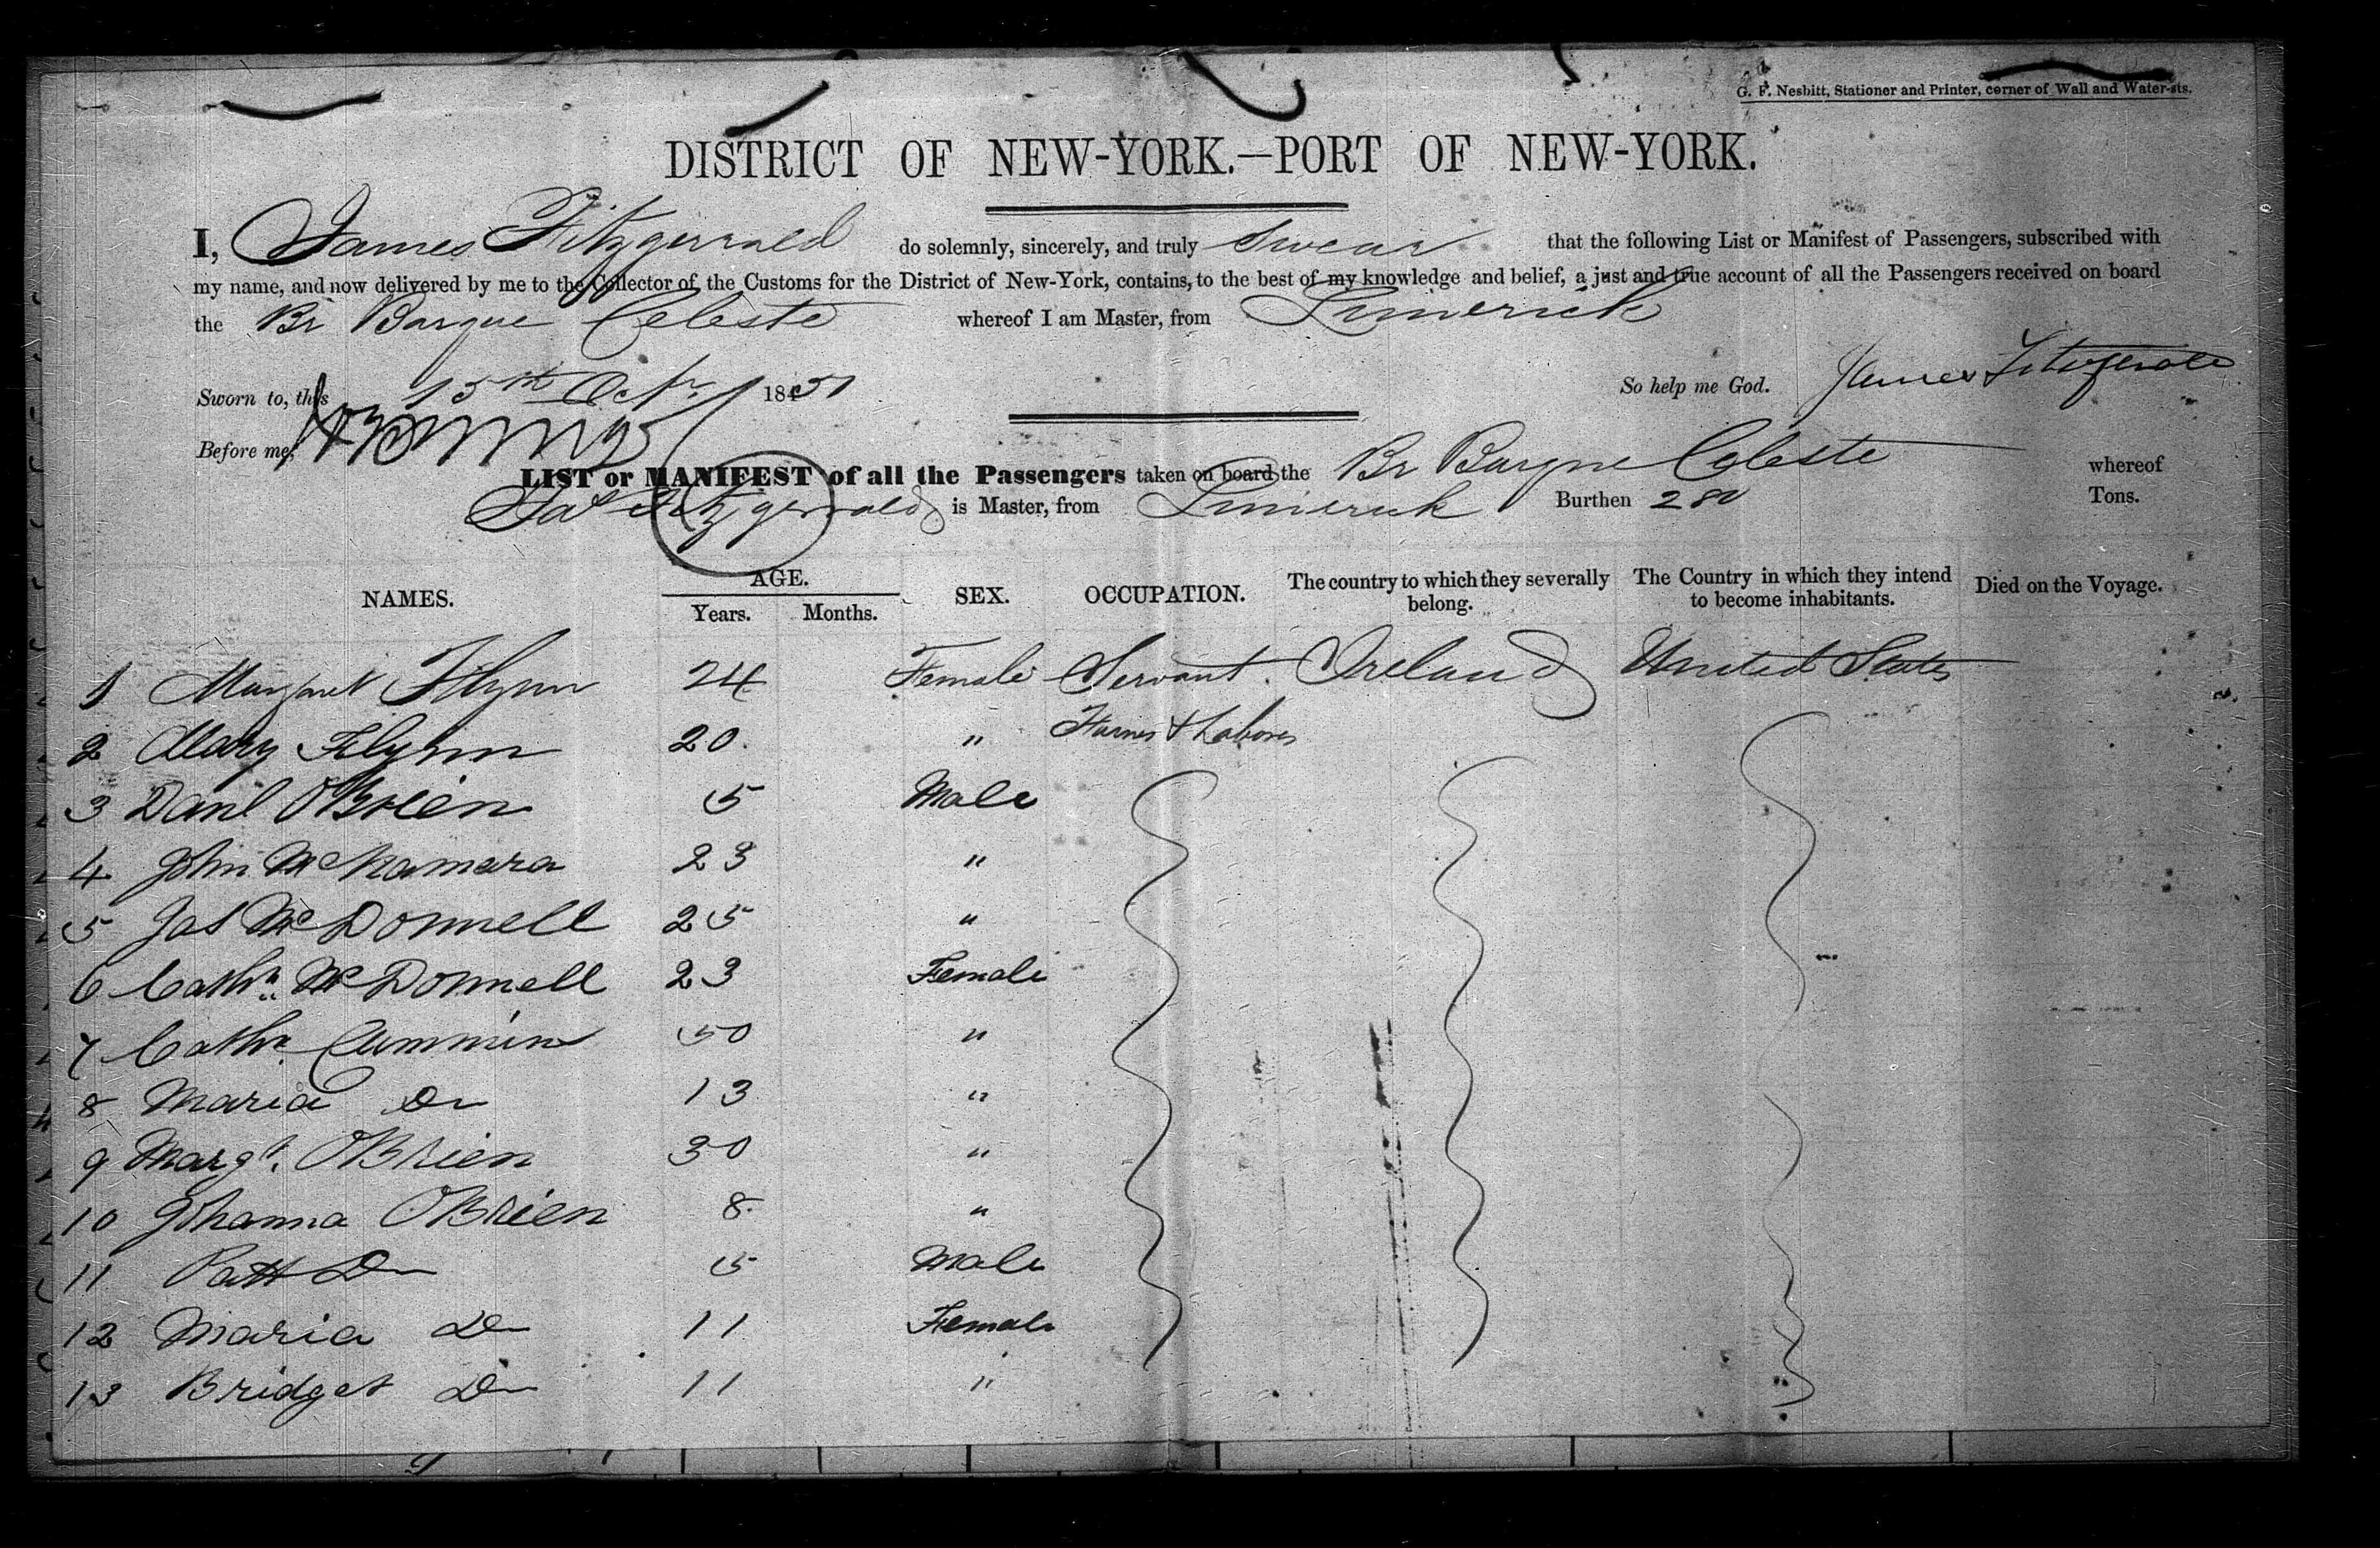 G. F. Nesbitt, Stationer and Printer, corner of Wall and Water-sts.
DISTRICT OF NEW-YORK.—PORT OF NEW-YORK.
I, James Fitzgerrald do solemnly, sincerely, and truly Swear that the following List or Manifest of Passengers, subscribed with
my name, and now delivered by me to the Collector of the Customs for the District of New-York, contains, to the best of my knowledge and belief, a just and true account of all the Passengers received on board
the Br Barque Celeste whereof I am Master, from Limerick
Sworn to, this 15th Octr 1851 So help me God. James Fitzgerald
Before me,
LIST or MANIFEST of all the Passengers taken on board the Br Barque Celeste whereof
Jas Fitzgerrald is Master, from Limerick Burthen 280 Tons.
NAMES. AGE. SEX. OCCUPATION. The country to which they severally belong. The Country in which they intend to become inhabitants. Died on the Voyage.
Years. Months.
1 Margaret Flynn 24 Female Servant. Ireland United States
2 Mary Flynn 20. " & Labores
3 Danl OBrien 5 Male
4 John McNamara 23 "
5 Jas McDonnell 25 "
6 Cathn McDonnell 23 Female
7 Cathn Cummin 50 "
8 Maria Do 13 "
9 Margt. OBrien 30 "
10 Johanna OBrien 8 "
11 Patt Do 5 Male
12 Maria Do 11 Female
13 Bridget Do 11 "